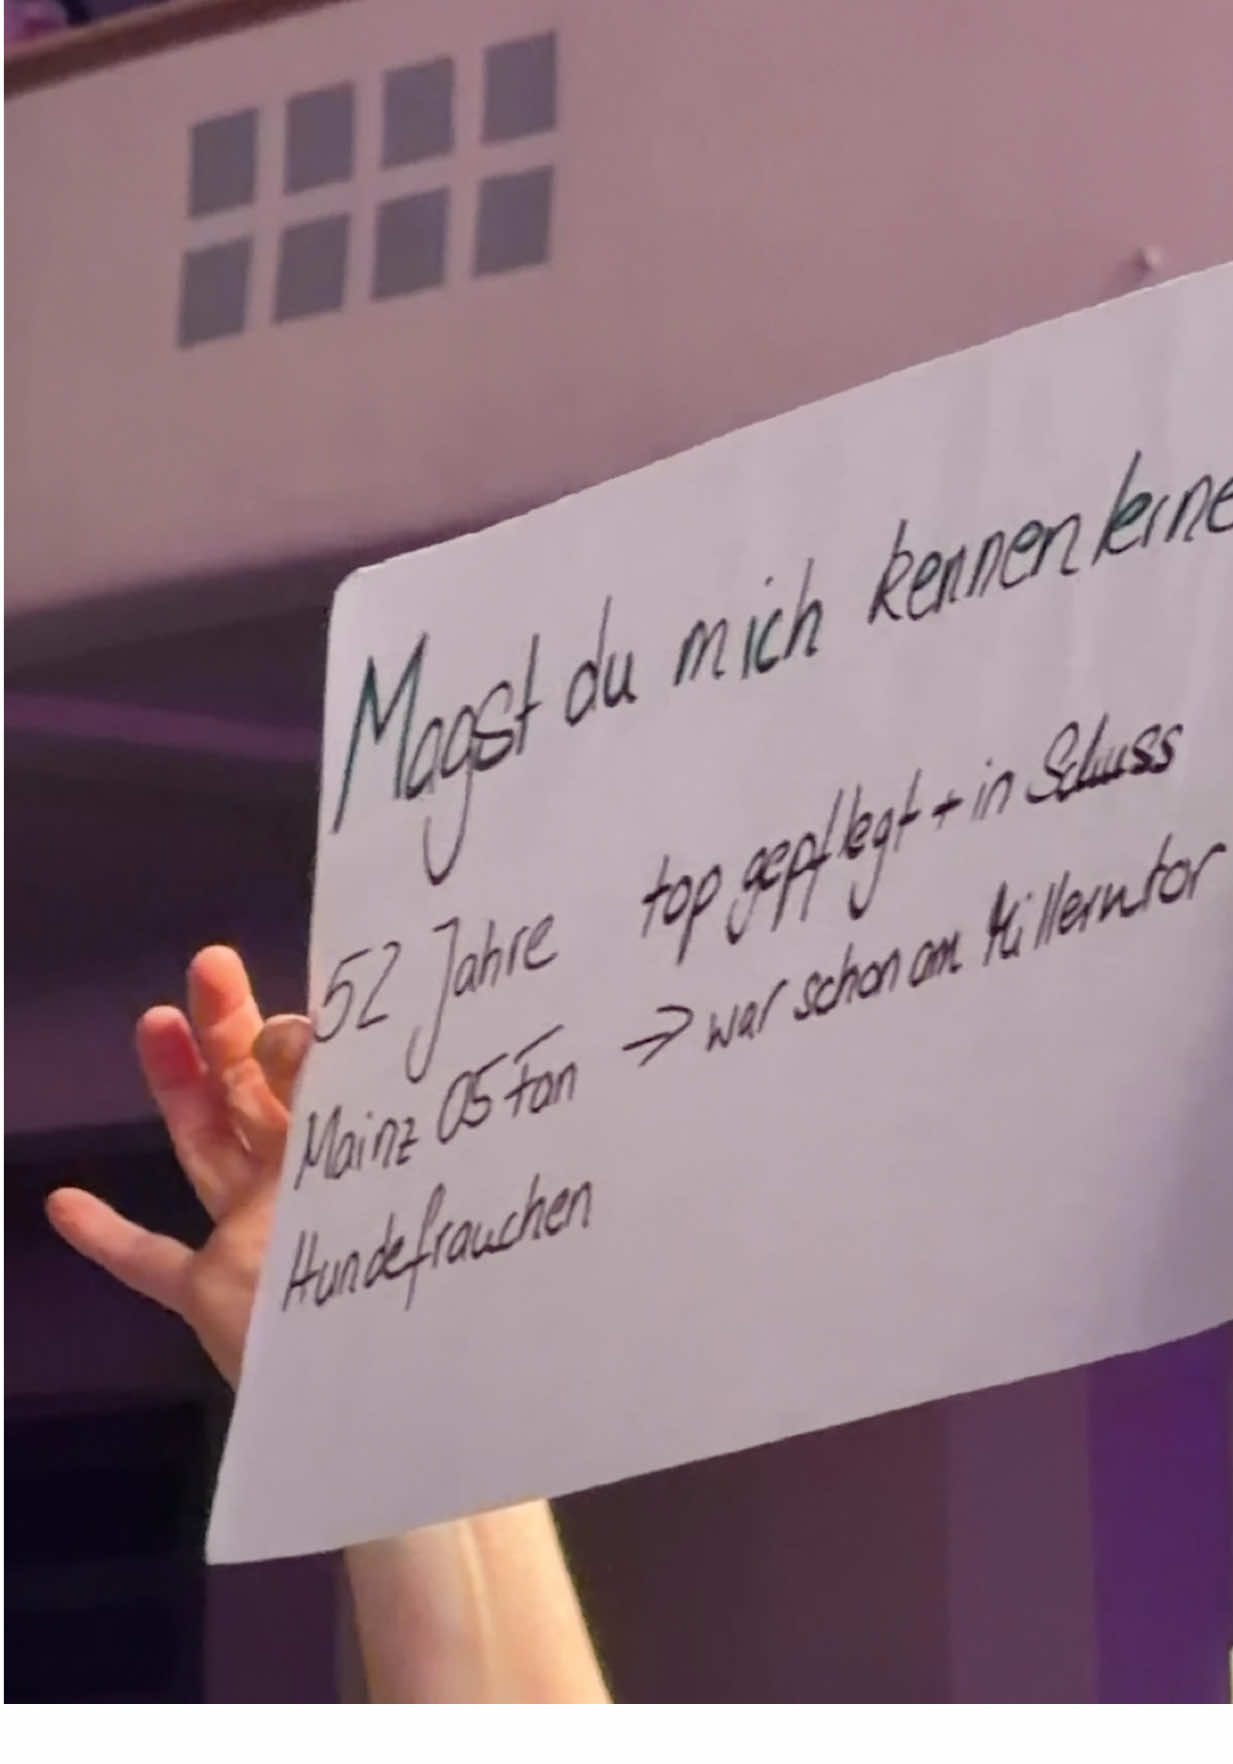 Magst du mich kennen lerne
52 Jahre top gepflegt + in Schuss
Mainz 05 Fan → war schon am Millerntor
Hundefrauchen